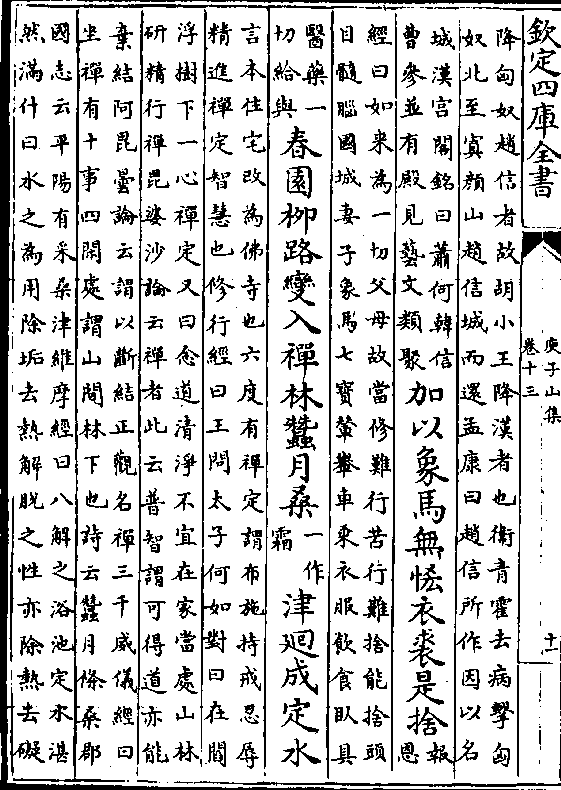 欽定四庫全書
庾子山集
卷十三
十一
降匈奴趙信者故胡小王降漢者也衛青霍去病擊匈
奴北至寘顔山趙信城而還孟康曰趙信所作因以名
城漢宮閣銘曰蕭何韓信
曹參並有殿見藝文類聚
加以象馬無恡衣裘是捨
報
恩
經曰如來為一切父母故當修難行苦行難捨能捨頭
目髓腦國城妻子象馬七寶輦轝車乘衣服飲食臥具
醫藥一
切給與
春園柳路變入禪林蠶月桑
一作
霜
津迴成定水
言本住宅改為佛寺也六度有禪定謂布施持戒忍辱
精進禪定智慧也修行經曰王問太子何如對曰在閻
浮樹下一心禪定又曰念道清淨不宜在家當處山林
研精行禪毘婆沙論云禪者此云普智謂可得道亦能
棄結阿毘曇論云謂以斷結正觀名禪三千威儀經曰
坐禪有十事四閑處謂山間林下也詩云蠶月條桑郡
國志云平陽有采桑津維摩經曰八解之浴池定水湛
然滿什曰水之為用除垢去熱解脫之性亦除熱去礙